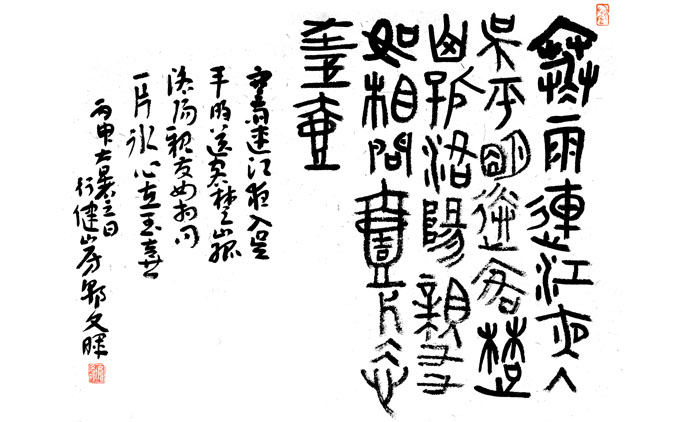 寒雨連江夜入
吳平明送客楚
山孤洛陽親友
如相問壹片冰心
在玉壺
寒雨連江夜入吳
平明送客楚山孤
洛陽親友如相問
一片冰心在玉壺
丙申大暑之日
行健山房